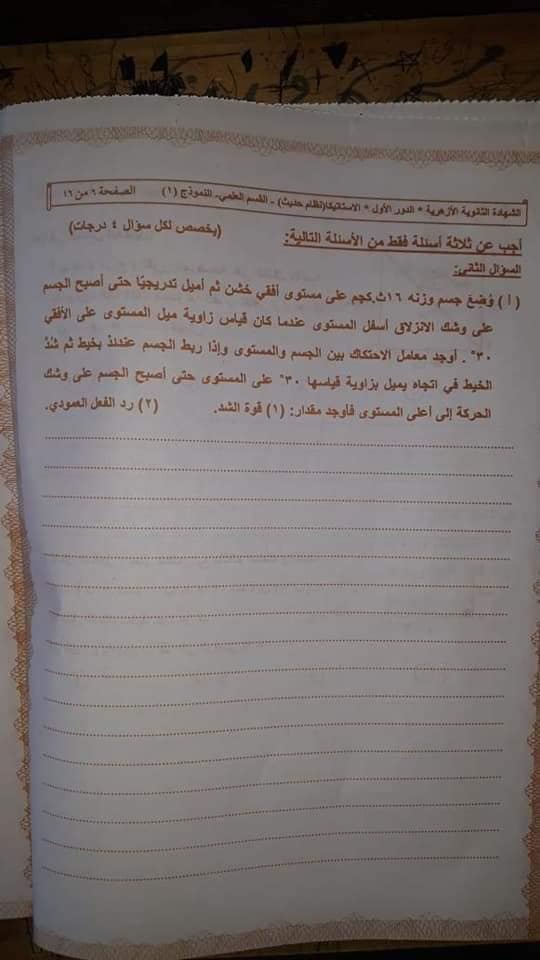 الشهادة الثانوية الأزهرية * الدور الأول * الاستاتيكا(نظام حديث) - القسم العلمي- النموذج (١) الصفحة ٦ من ١٦
أجب عن ثلاثة أسئلة فقط من الأسئلة التالية: (يخصص لكل سؤال ٤ درجات)
السؤال الثاني:
(أ) وُضِعَ جسم وزنه ١٦ث.كجم على مستوى أفقي خشن ثم أميل تدريجيًا حتى أصبح الجسم
على وشك الانزلاق أسفل المستوى عندما كان قياس زاوية ميل المستوى على الأفقي
٣٠°. أوجد معامل الاحتكاك بين الجسم والمستوى وإذا ربط الجسم عندئذ بخيط ثم شُدَّ
الخيط في اتجاه يميل بزاوية قياسها ٣٠° على المستوى حتى أصبح الجسم على وشك
الحركة إلى أعلى المستوى فأوجد مقدار: (١) قوة الشد. (٢) رد الفعل العمودي.